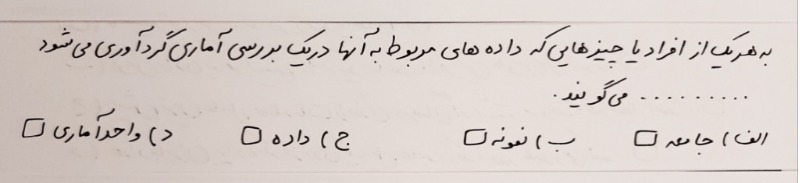 به هر یک از افراد یا چیزهایی که داده های مربوط به آنها در یک بررسی آماری گردآوری می شود
.......... می گویند.
الف) جامعه □ ب) نمونه □ ج) داده □ د) واحد آماری □